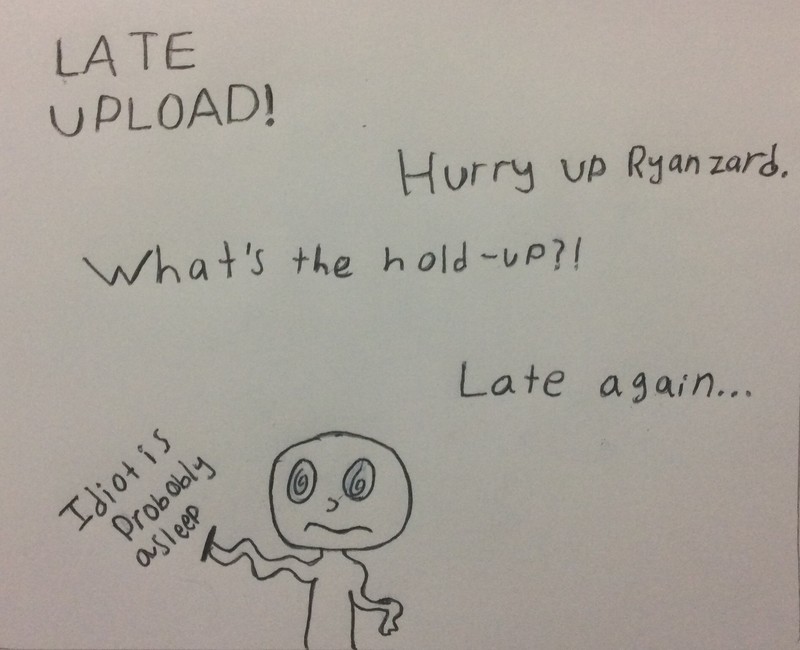 LATE
UPLOAD!
Hurry up Ryanzard.
What's the hold-up?!
Late again...
Idiot is
probobly
asleep